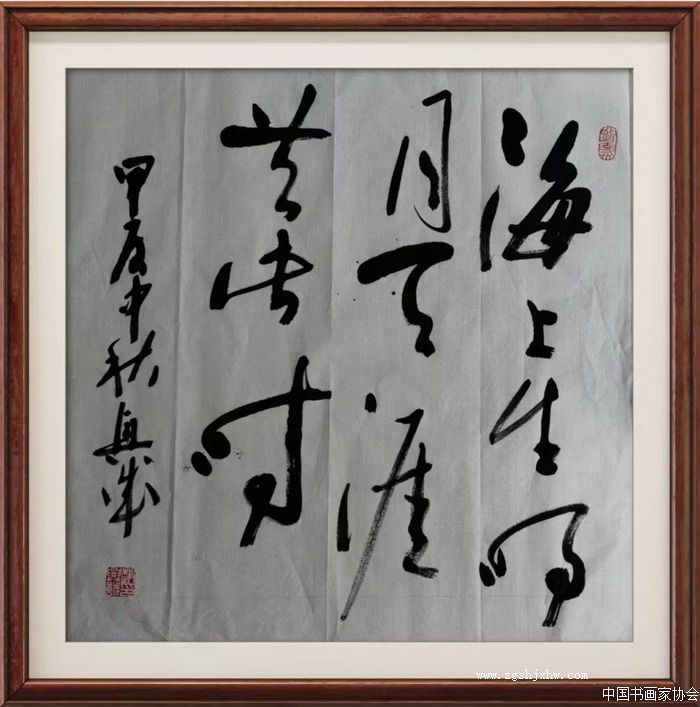 海上生明
月天涯
共此时
甲辰中秋
www.zgshjxhw.com
中国书画家协会